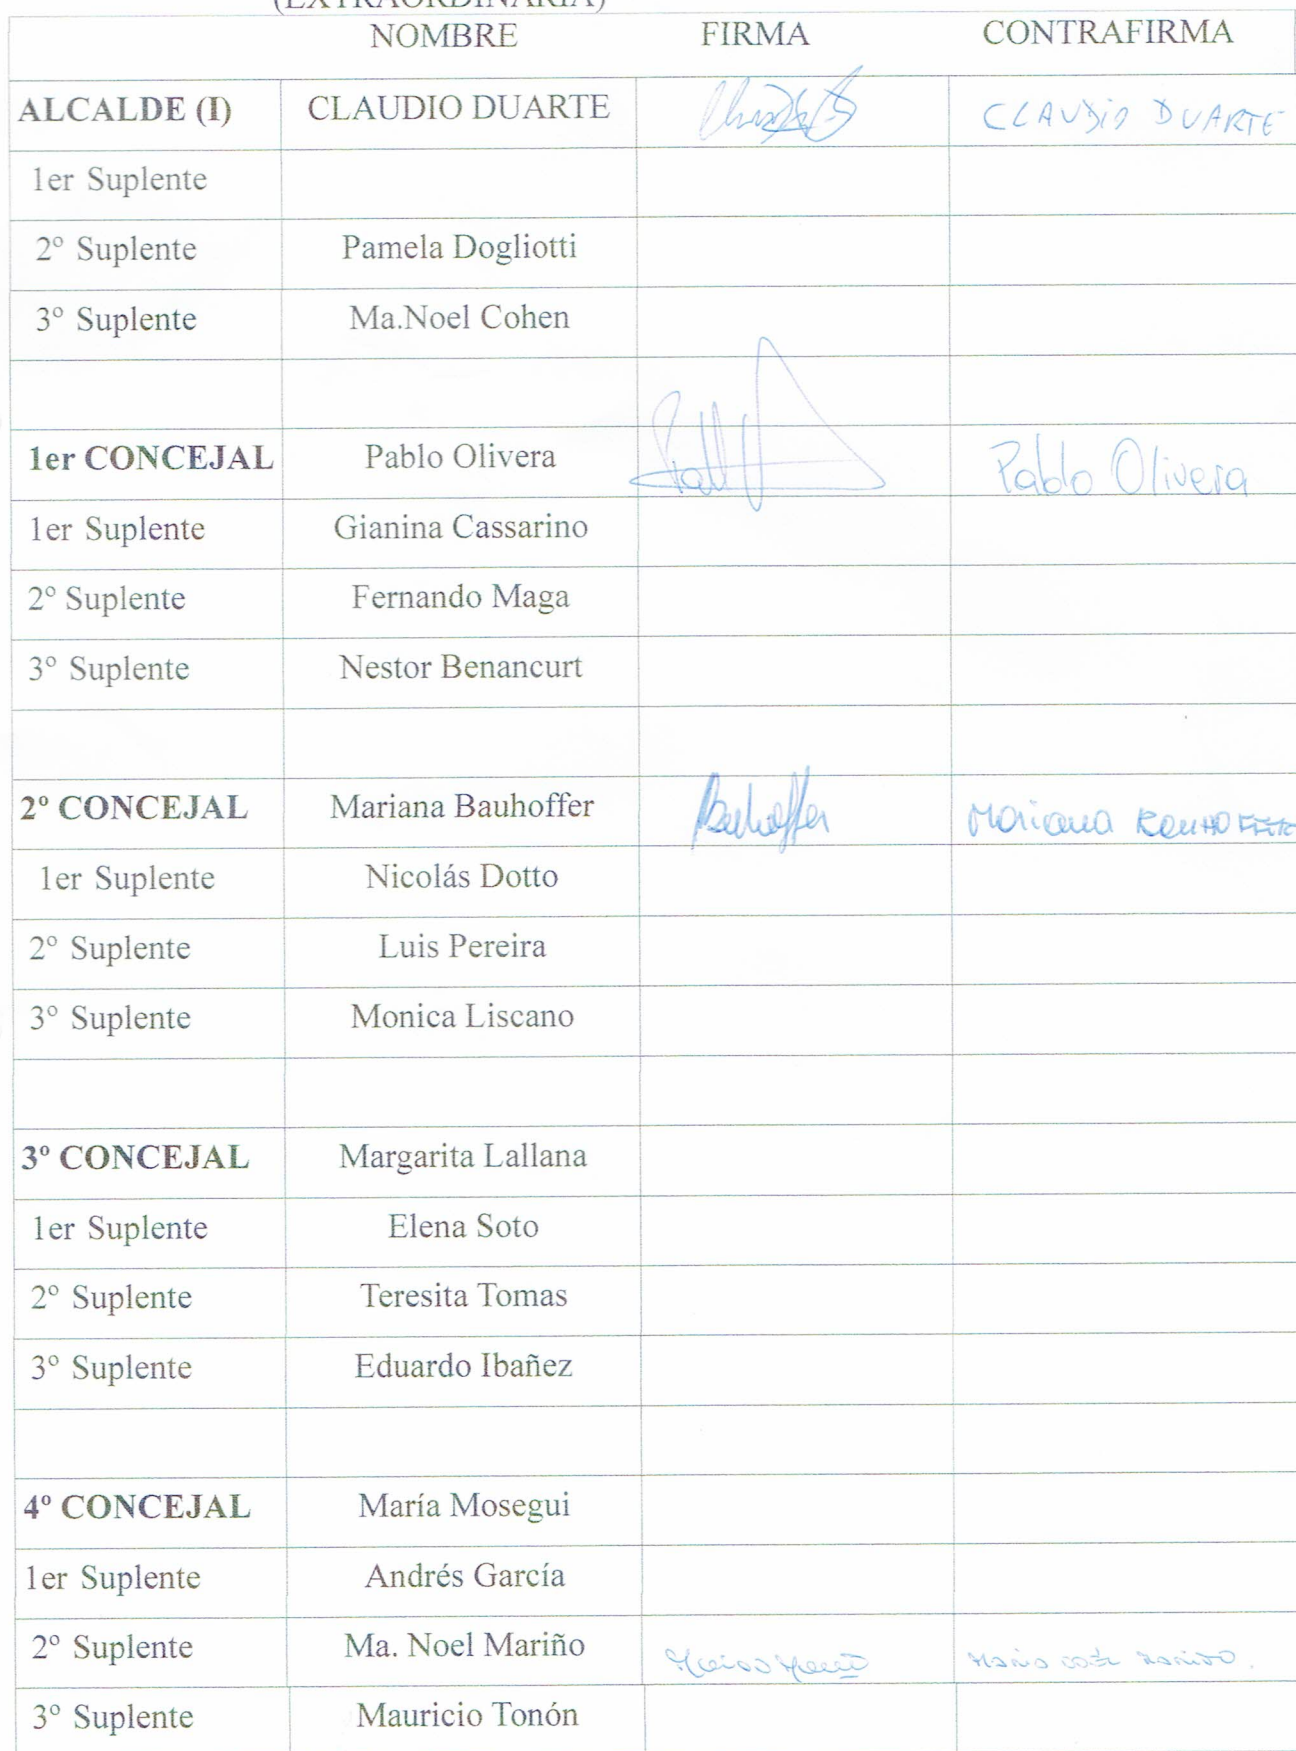 (EXTRAORDINARIA)
NOMBRE FIRMA CONTRAFIRMA
ALCALDE (I) CLAUDIO DUARTE CLAUDIO DUARTE
1er Suplente
2º Suplente Pamela Dogliotti
3º Suplente Ma.Noel Cohen
1er CONCEJAL Pablo Olivera Pablo Olivera
1er Suplente Gianina Cassarino
2º Suplente Fernando Maga
3º Suplente Nestor Benancurt
2º CONCEJAL Mariana Bauhoffer Bauhoffer Mariana BauHOFFER
1er Suplente Nicolás Dotto
2º Suplente Luis Pereira
3º Suplente Monica Liscano
3º CONCEJAL Margarita Lallana
1er Suplente Elena Soto
2º Suplente Teresita Tomas
3º Suplente Eduardo Ibañez
4º CONCEJAL María Mosegui
1er Suplente Andrés García
2º Suplente Ma. Noel Mariño
3º Suplente Mauricio Tonón